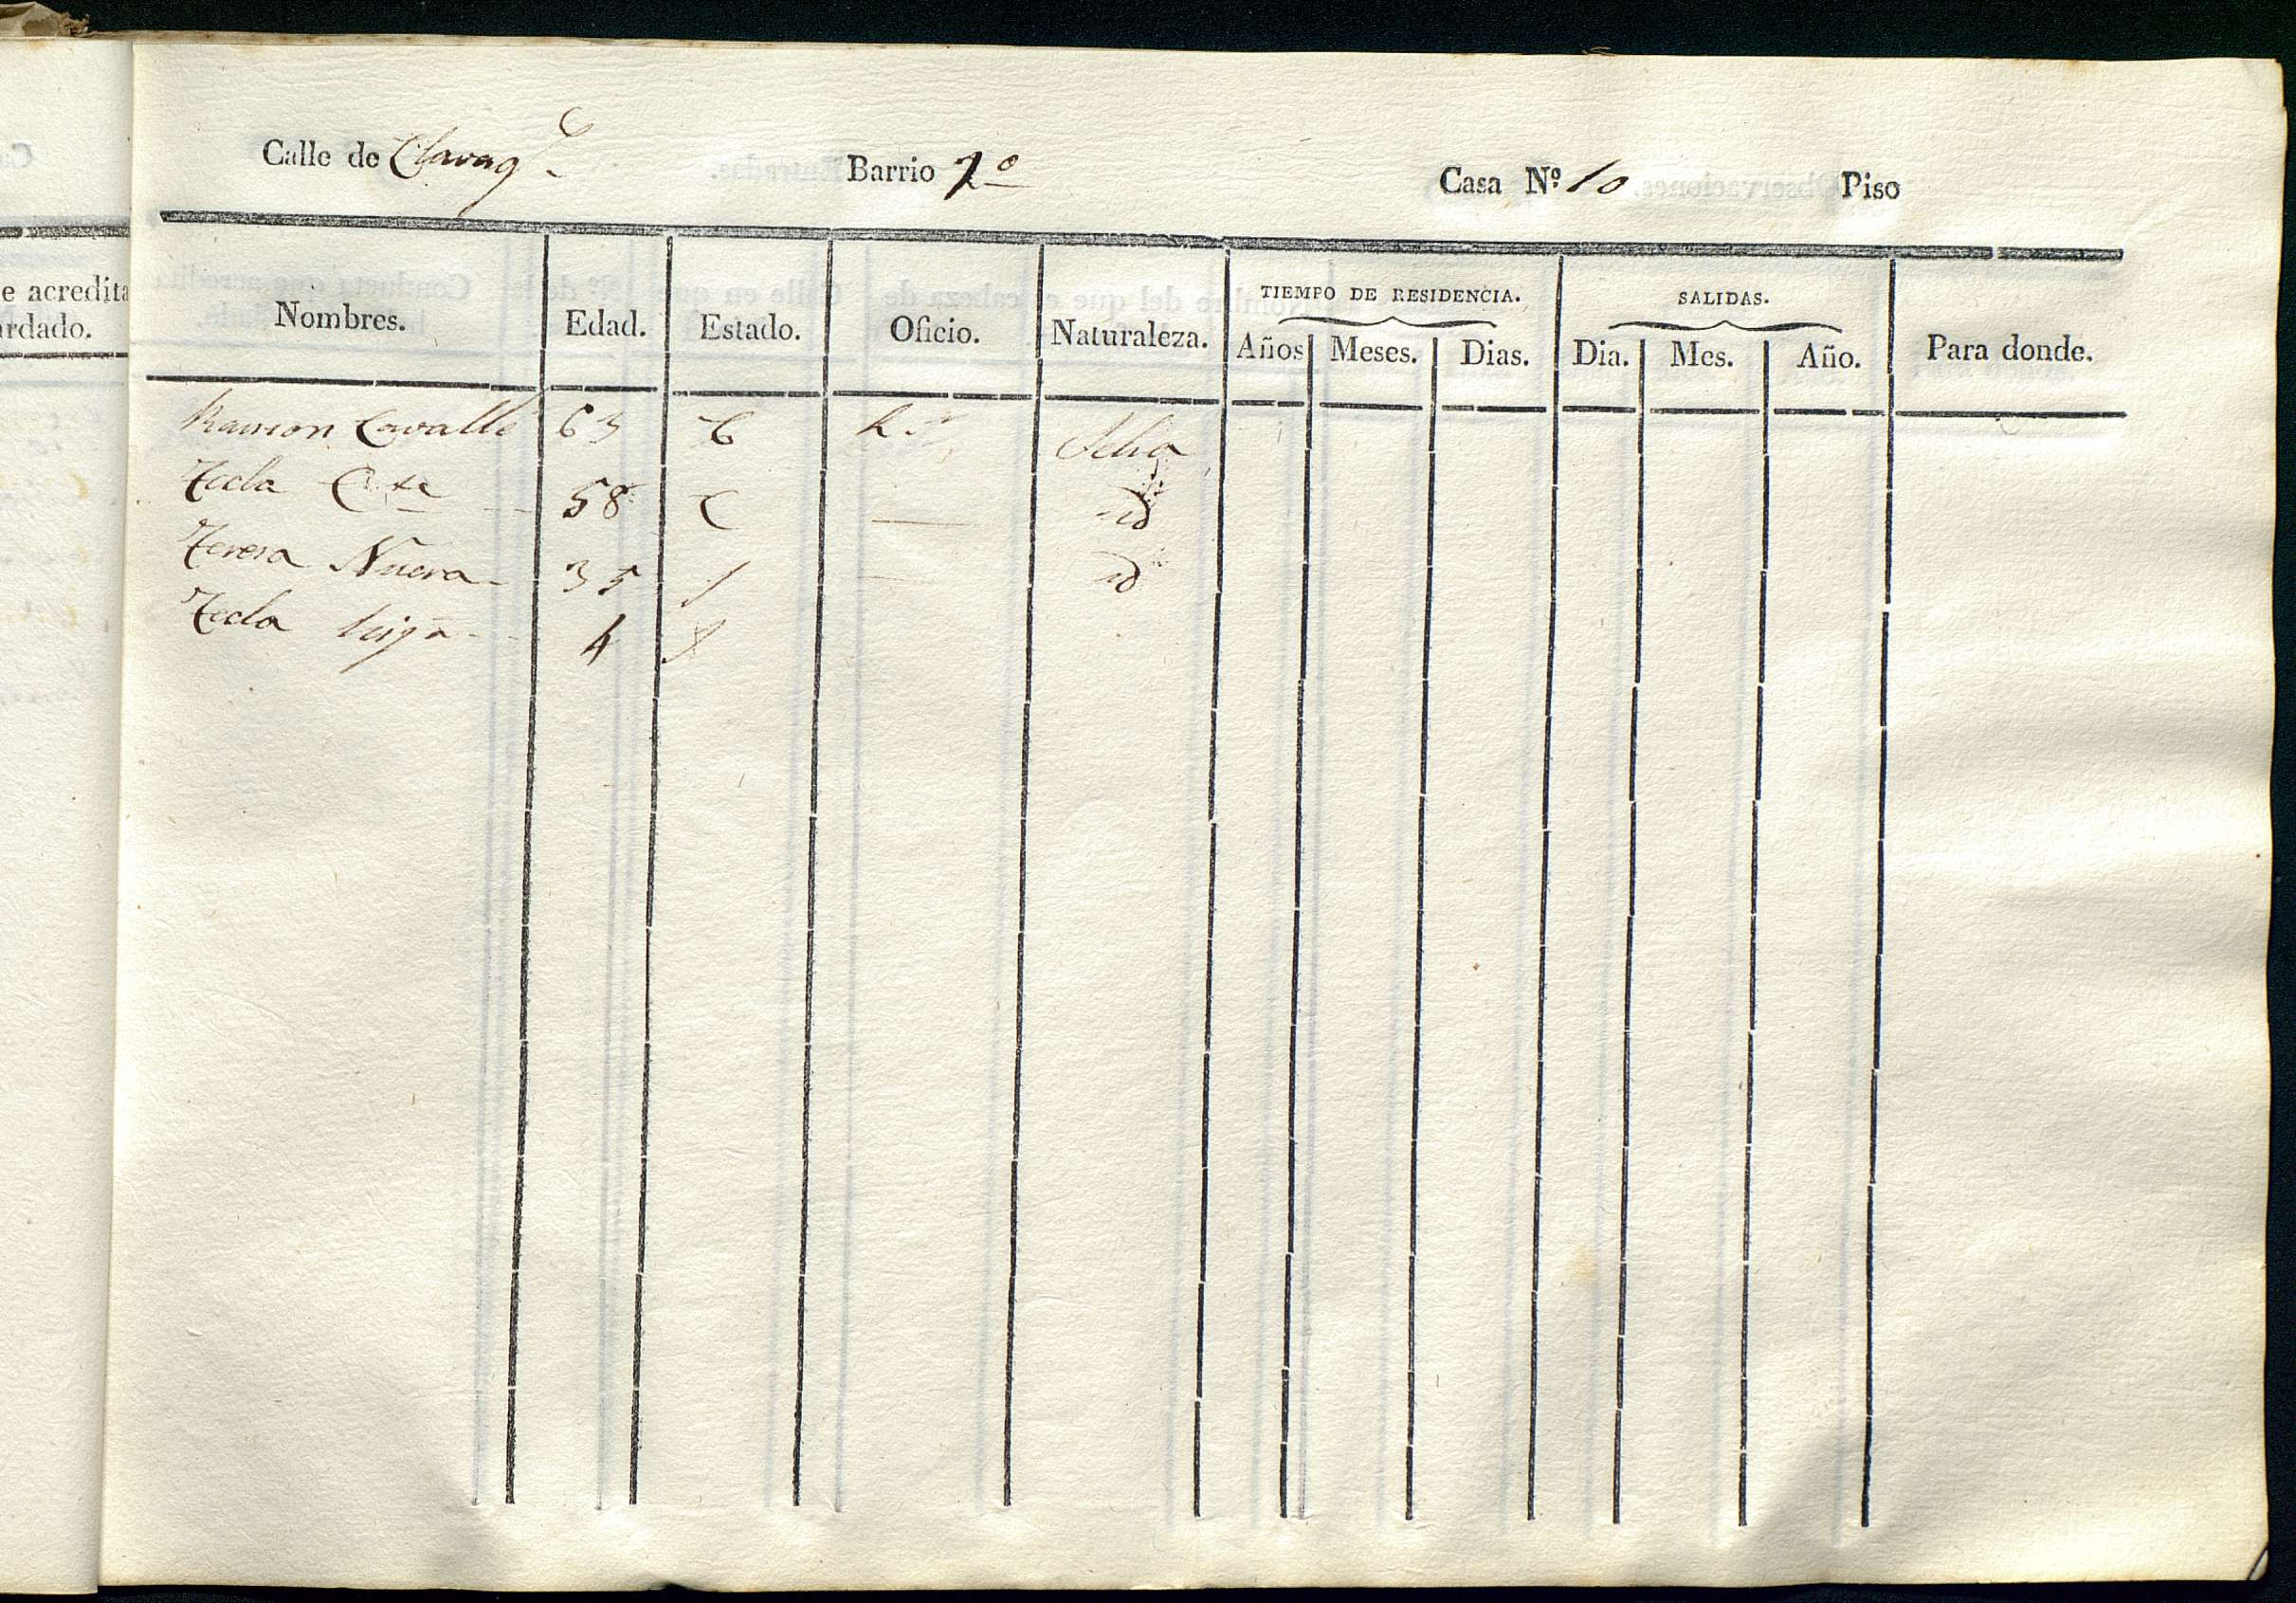 e acredita
ardado.
Calle de Clavag
Barrio 1º
Casa Nº 10
Piso
Nombres.
Edad.
Estado.
Oficio.
Naturaleza.
TIEMPO DE RESIDENCIA.
Años
Meses.
Dias.
SALIDAS.
Dia.
Mes.
Año.
Para donde.
Ramon Cavalle 63 C
Tecla 58 C — id
Teresa Nuera - 35 S — id
Tecla hija - 4 S